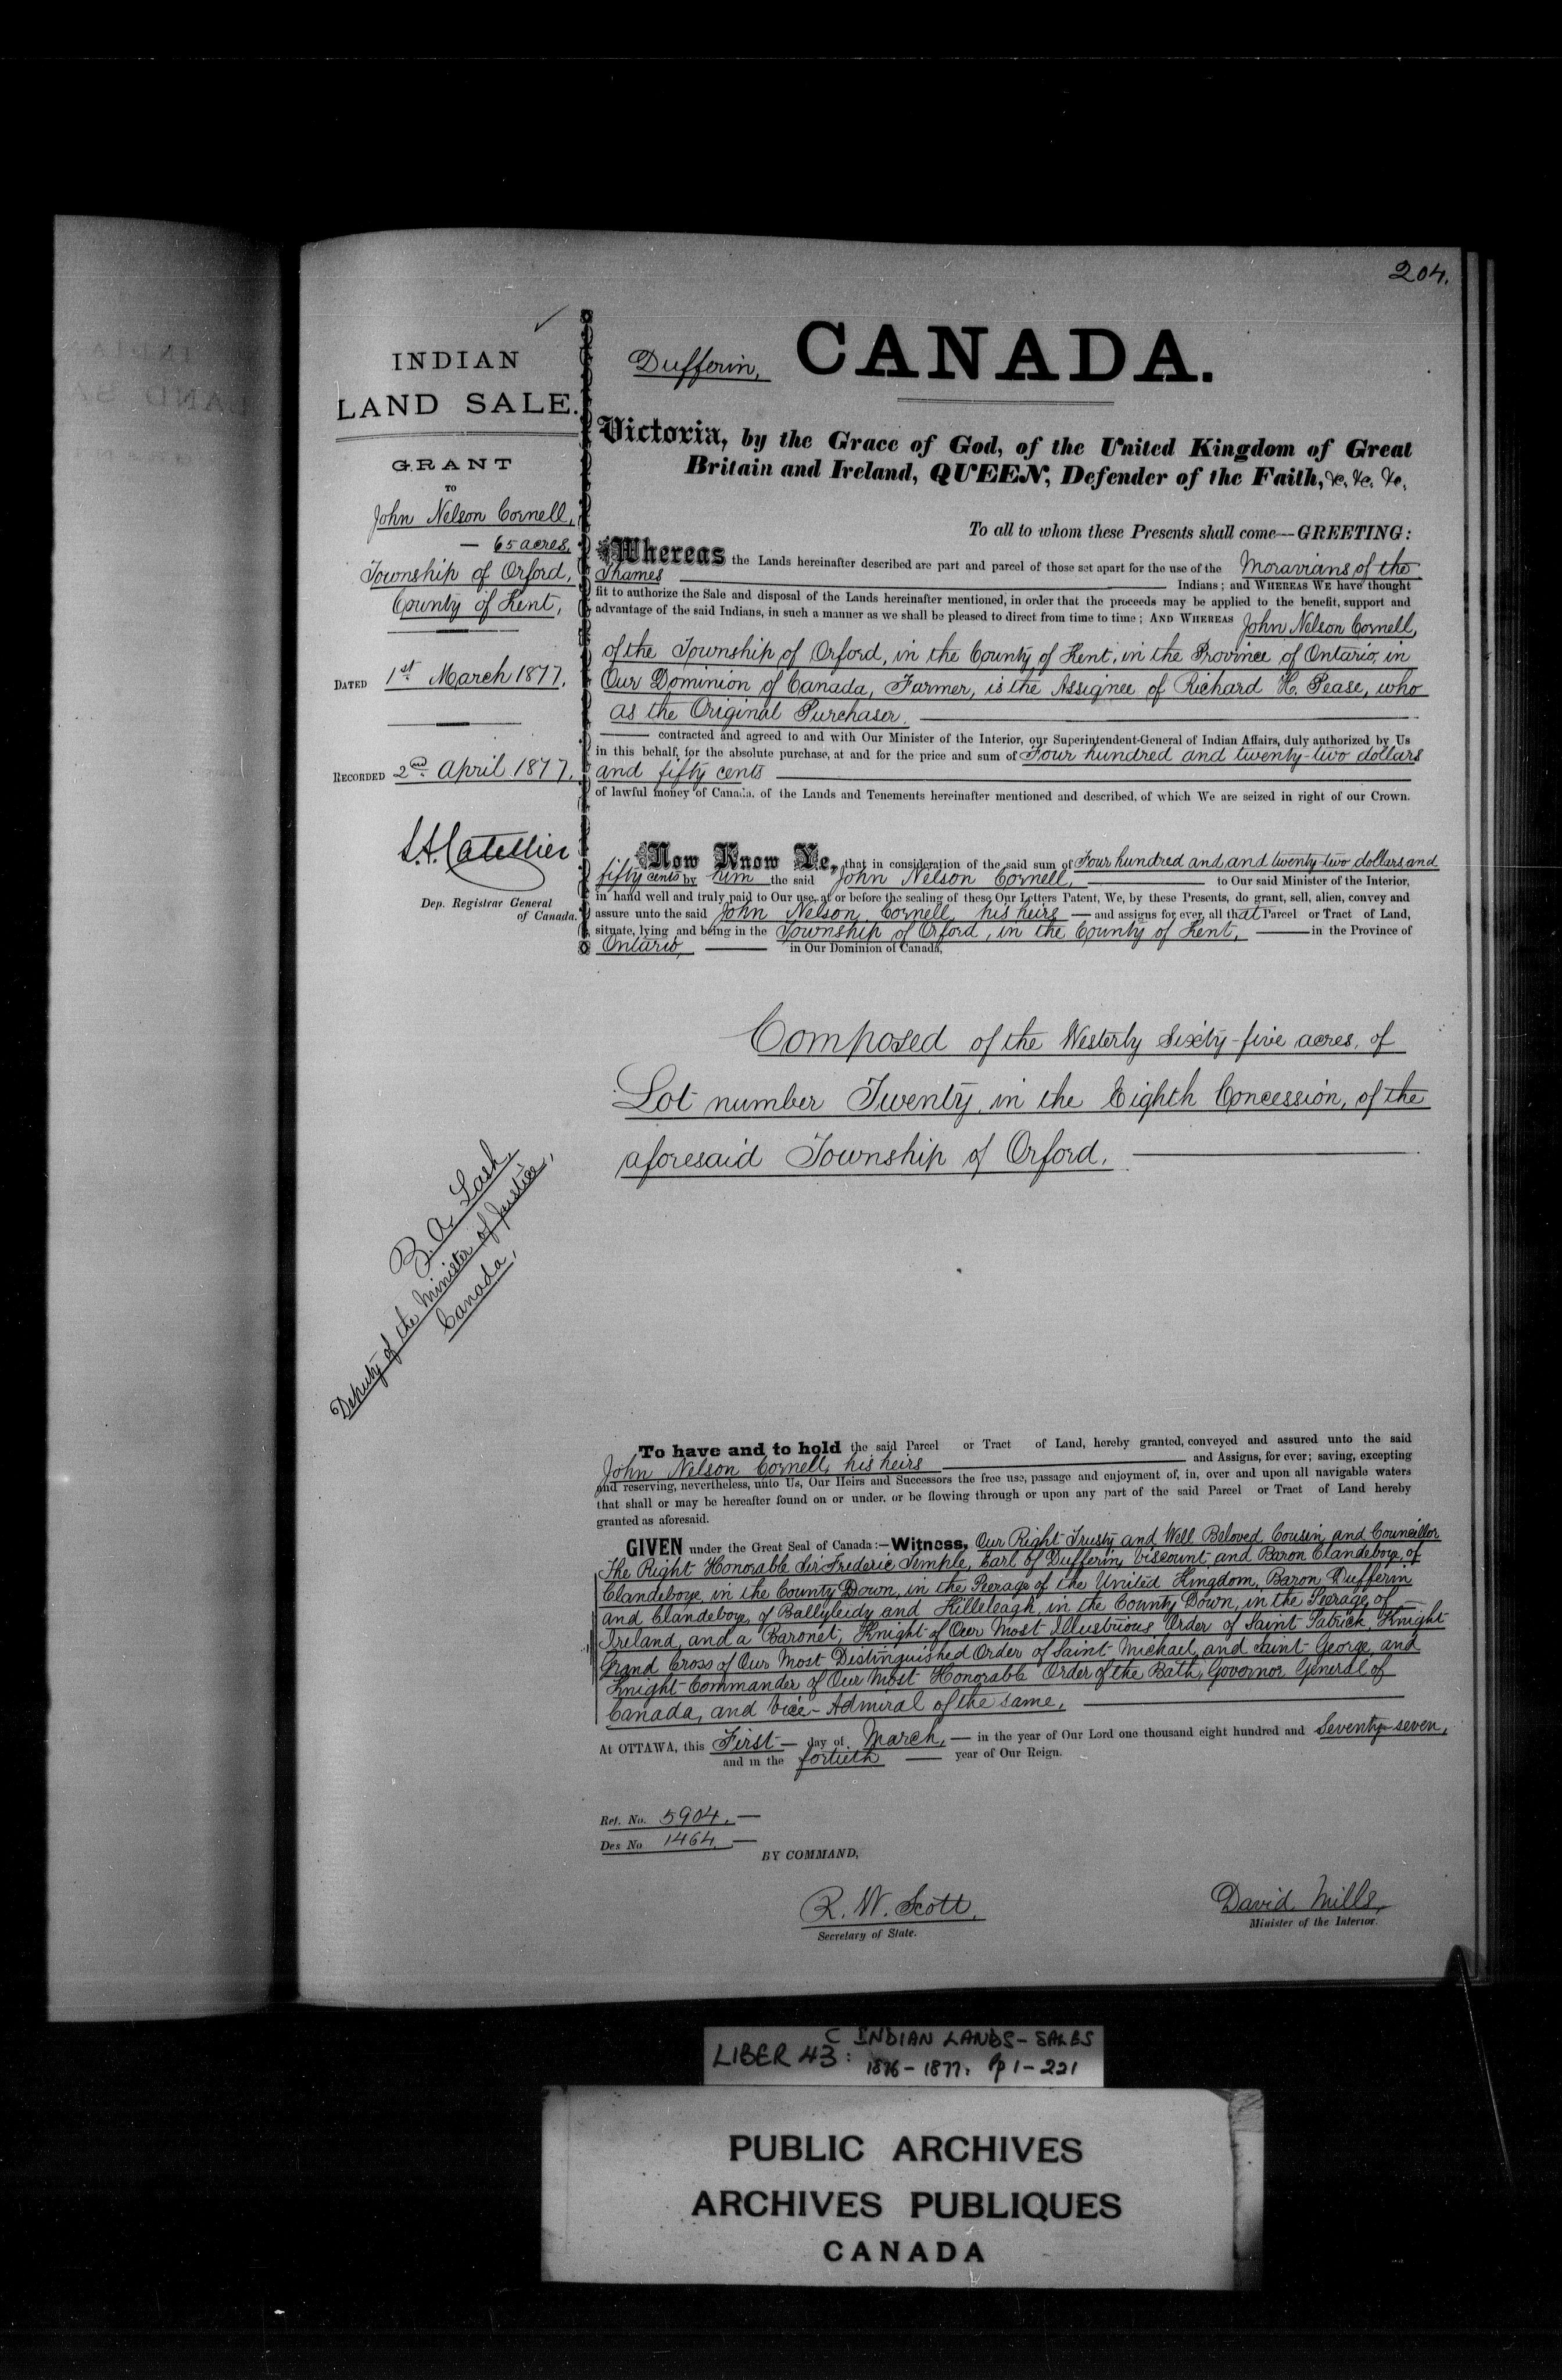 204.
INDIAN
LAND SALE.
GRANT
TO
John Nelson Cornell,
— 65 acres,
Township of Orford,
County of Kent,
DATED 1st March 1877.
RECORDED 2nd April 1877.
Dep. Registrar General
of Canada.
Z. A. Lash,
Deputy of the Minister of Justice,
Canada,
Dufferin, CANADA.
Victoria, by the Grace of God, of the United Kingdom of Great
Britain and Ireland, QUEEN, Defender of the Faith, &c. &c. &c.
To all to whom these Presents shall come—GREETING:
Whereas the Lands hereinafter described are part and parcel of those set apart for the use of the Moravians of the
Thames Indians; and WHEREAS WE have thought
fit to authorize the Sale and disposal of the Lands hereinafter mentioned, in order that the proceeds may be applied to the benefit, support and
advantage of the said Indians, in such a manner as we shall be pleased to direct from time to time; AND WHEREAS John Nelson Cornell,
of the Township of Orford, in the County of Kent, in the Province of Ontario, in
Our Dominion of Canada, Farmer, is the Assignee of Richard H. Pease, who
as the Original Purchaser.
contracted and agreed to and with Our Minister of the Interior, our Superintendent-General of Indian Affairs, duly authorized by Us
in this behalf, for the absolute purchase, at and for the price and sum of Four hundred and twenty-two dollars
and fifty cents
of lawful money of Canada, of the Lands and Tenements hereinafter mentioned and described, of which We are seized in right of our Crown.
Now Know Ye, that in consideration of the said sum of Four hundred and and twenty-two dollars and
fifty cents by him the said John Nelson Cornell, to Our said Minister of the Interior,
in hand well and truly paid to Our use, at or before the sealing of these Our Letters Patent, We, by these Presents, do grant, sell, alien, convey and
assure unto the said John Nelson Cornell, his heirs — and assigns for ever, all that Parcel or Tract of Land,
situate, lying and being in the Township of Orford, in the County of Kent, — in the Province of
Ontario, in Our Dominion of Canada,
Composed of the Westerly Sixty-five acres, of
Lot number Twenty, in the Eighth Concession, of the
aforesaid Township of Orford.
To have and to hold the said Parcel or Tract of Land, hereby granted, conveyed and assured unto the said
John Nelson Cornell, his heirs and Assigns, for ever; saving, excepting
and reserving, nevertheless, unto Us, Our Heirs and Successors the free use, passage and enjoyment of, in, over and upon all navigable waters
that shall or may be hereafter found on or under, or be flowing through or upon any part of the said Parcel or Tract of Land hereby
granted as aforesaid.
GIVEN under the Great Seal of Canada:—Witness, Our Right Trusty and Well Beloved Cousin and Councillor
The Right Honorable Sir Frederic Temple, Earl of Dufferin, Viscount and Baron Clandeboye, of
Clandeboye, in the County Down, in the Peerage of the United Kingdom, Baron Dufferin
and Clandeboye, of Ballyleidy and Killeleagh, in the County Down, in the Peerage of
Ireland, and a Baronet, Knight of Our Most Illustrious Order of Saint Patrick, Knight
Grand Cross of Our Most Distinguished Order of Saint Michael and Saint George, and
Knight Commander of Our Most Honorable Order of the Bath, Governor General of
Canada, and Vice-Admiral of the same,
At OTTAWA, this First — day of March, — in the year of Our Lord one thousand eight hundred and Seventy-seven,
and in the fortieth — year of Our Reign.
Ref. No. 5904. —
Des No 1464. —
BY COMMAND,
R. W. Scott,
Secretary of State.
David Mills,
Minister of the Interior.
LIBER 43C: INDIAN LANDS - SALES
1876 - 1877. Pp 1 - 221
PUBLIC ARCHIVES
ARCHIVES PUBLIQUES
CANADA